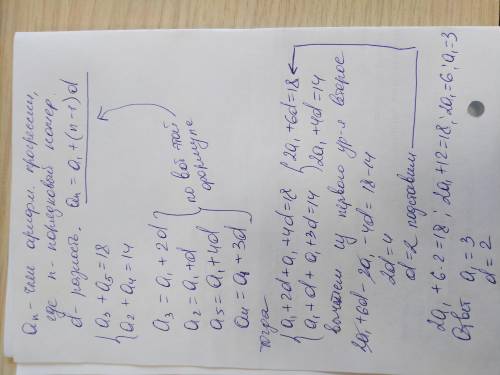 an - член арифм. прогрессии,
где n - порядковый номер
d - разность. an = a1 + (n-1)d
{ a3 + a5 = 18
a2 + a4 = 14
a3 = a1 + 2d
a2 = a1 + d
a5 = a1 + 4d
a4 = a1 + 3d
} по вот этой формуле
тогда
{ a1 + 2d + a1 + 4d = 18
a1 + d + a1 + 3d = 14
{ 2a1 + 6d = 18
2a1 + 4d = 14
вычтем из первого ур-я второе
2a1 + 6d - 2a1 - 4d = 18 - 14
2d = 4
d = 2 подставим
2a1 + 6·2 = 18 ; 2a1 + 12 = 18 ; 2a1 = 6 ; a1 = 3
Ответ a1 = 3
d = 2